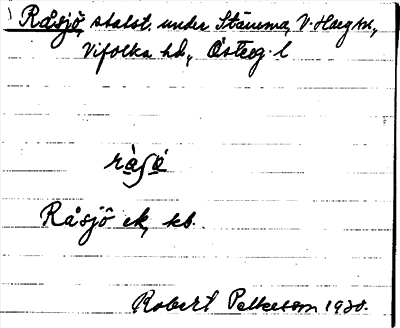 1) Råsjö, stalst. under Stämma, V. Harg sn,
Vifolka hd., Österg. l
råʃö
Råsjö ek, kb.
Robert Pettersson 1930.